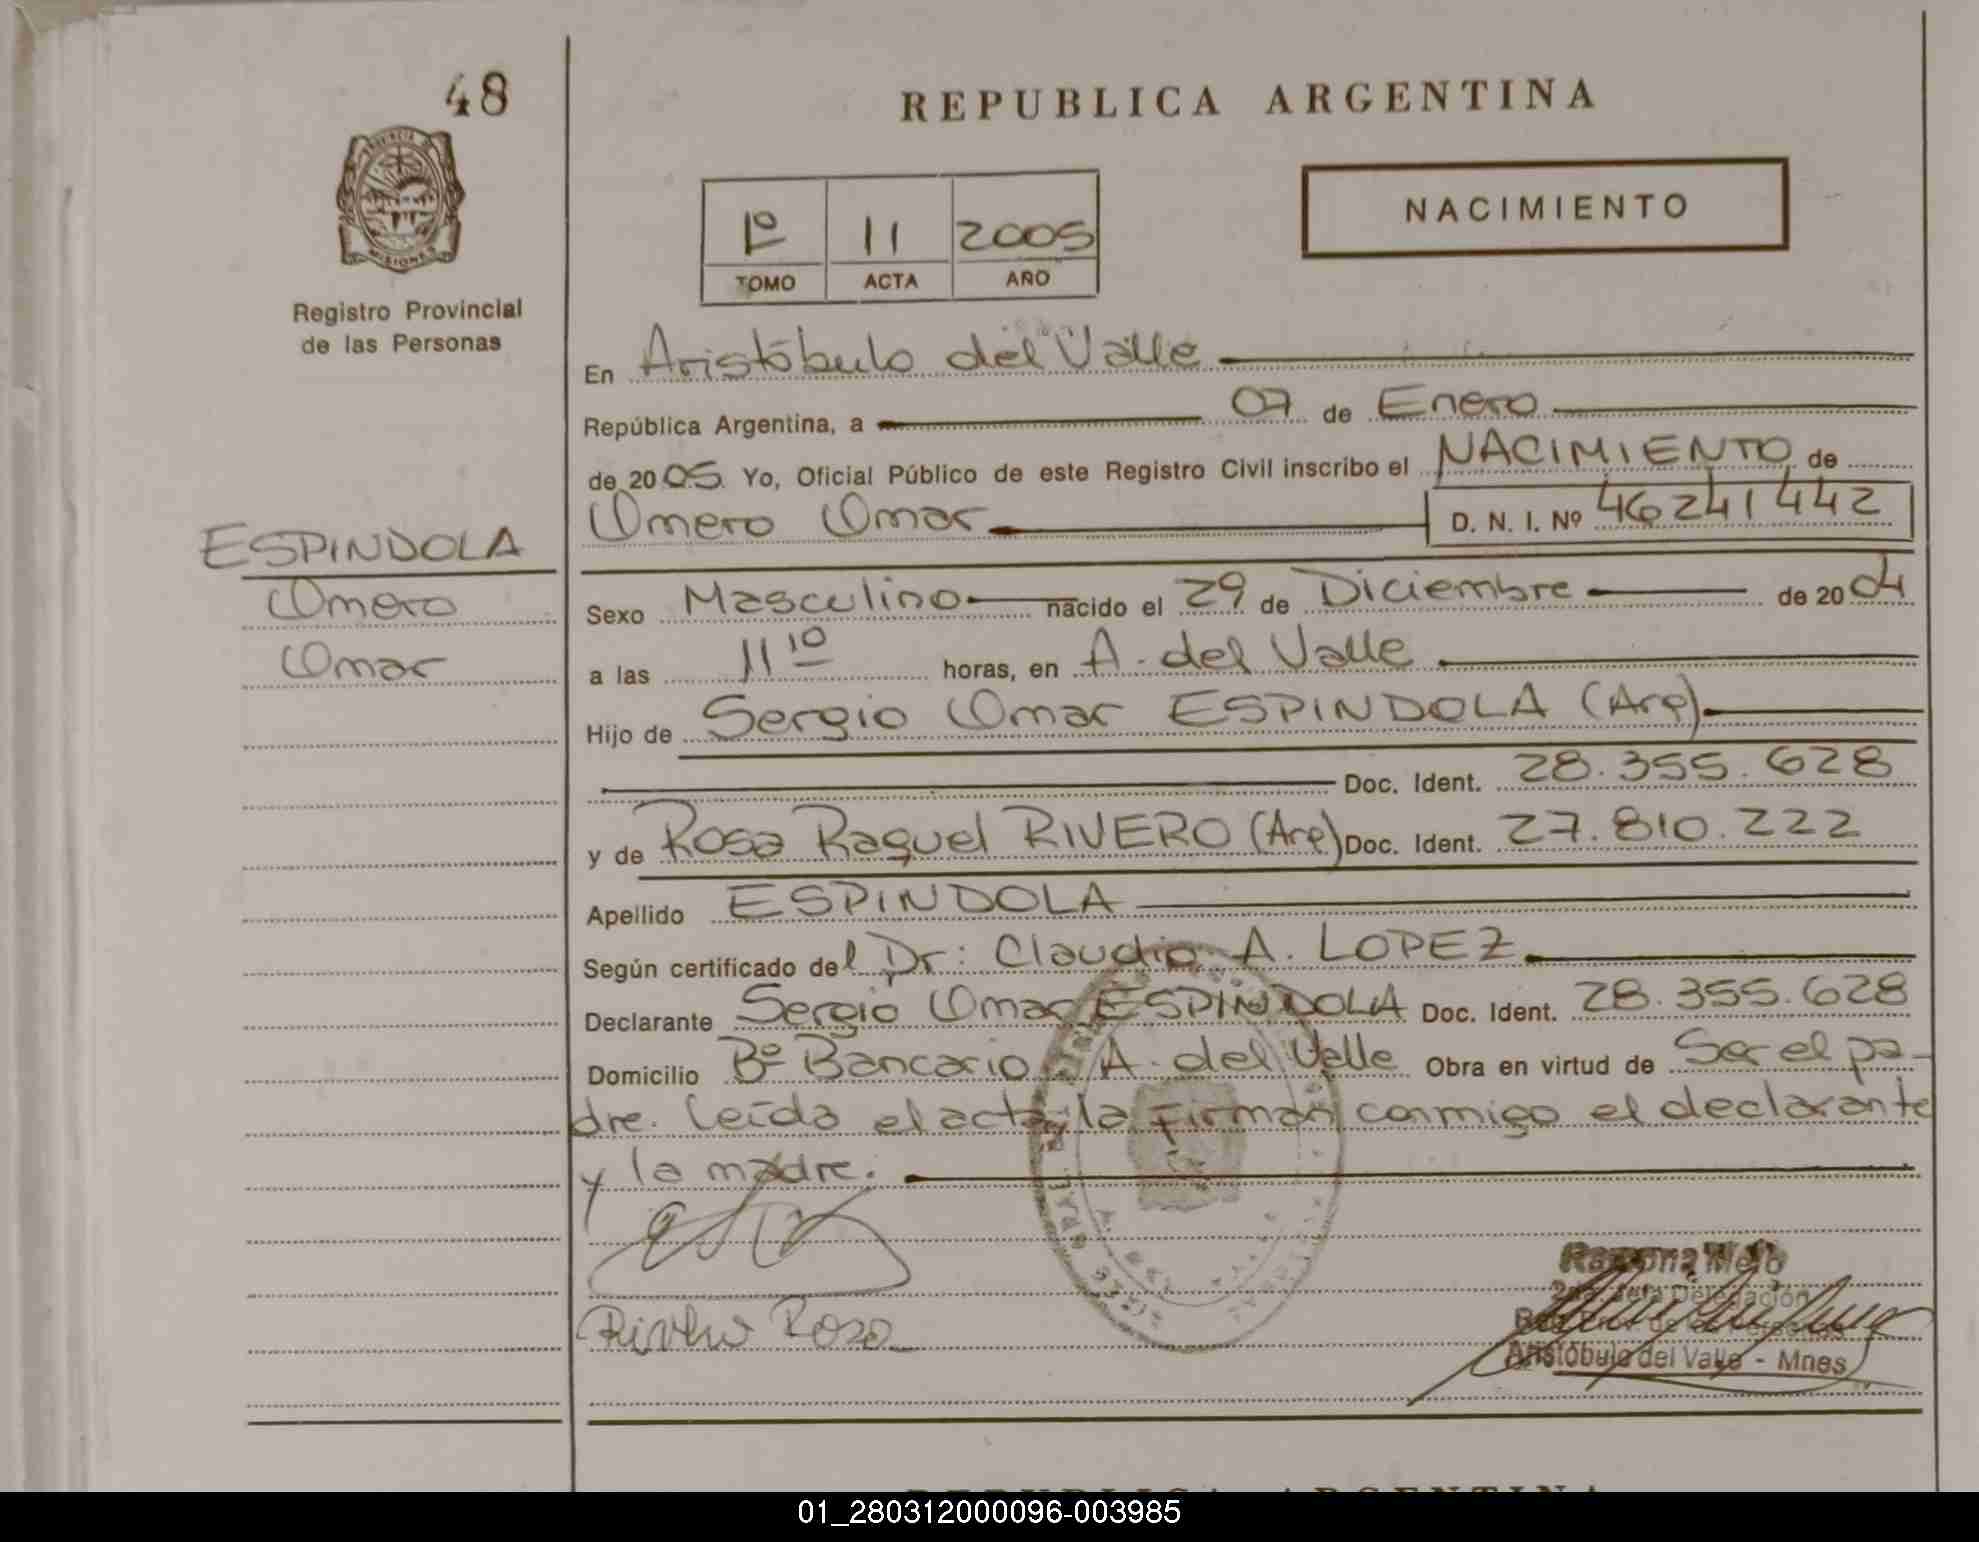 48
REPUBLICA ARGENTINA
NACIMIENTO
1º 11 2005
TOMO ACTA AÑO
PROVINCIA DE
MISIONES
Registro Provincial
de las Personas
En Aristóbulo del Valle
República Argentina, a 07 de Enero
de 2005 Yo, Oficial Público de este Registro Civil inscribo el NACIMIENTO de
Omero Omar D. N. I. Nº 46241442
ESPINDOLA
Omero
Omar
Sexo Masculino nacido el 29 de Diciembre de 2004
a las 11 10 horas, en A. del Valle
Hijo de Sergio Omar ESPINDOLA (Arg)
Doc. Ident. 28.355.628
y de Rosa Raquel RIVERO (Arg) Doc. Ident. 27.810.222
Apellido ESPINDOLA
Según certificado del Dr: Claudio A. LOPEZ
Declarante Sergio Omar ESPINDOLA Doc. Ident. 28.355.628
Domicilio Bº Bancario A. del Valle Obra en virtud de Ser el pa-
dre. Leída el acta, la firman conmigo el declarante
y la madre.
Rosa
Ramona Melo
Delegación
Aristóbulo del Valle - Mnes
REPUBLICA ARGENTINA
01_280312000096-003985